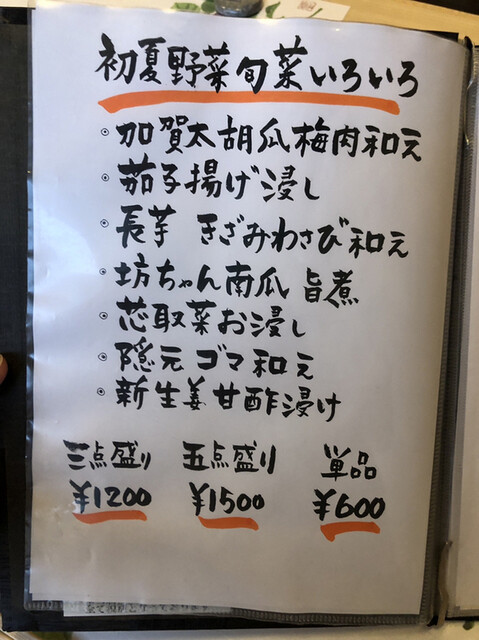 初夏野菜旬菜いろいろ
・加賀太胡瓜梅肉和え
・茄子揚げ浸し
・長芋 きざみわさび和え
・坊ちゃん南瓜 旨煮
・芯取菜お浸し
・隠元 ゴマ和え
・新生姜甘酢浸け
三点盛り 五点盛り 単品
¥1200 ¥1500 ¥600